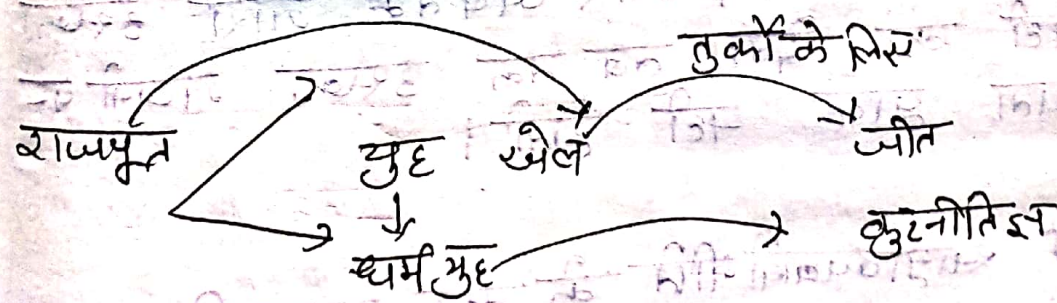 तुर्कों के लिए
राजपूत युद्ध खेल जीत
धर्म युद्ध कुटनीतिज्ञ